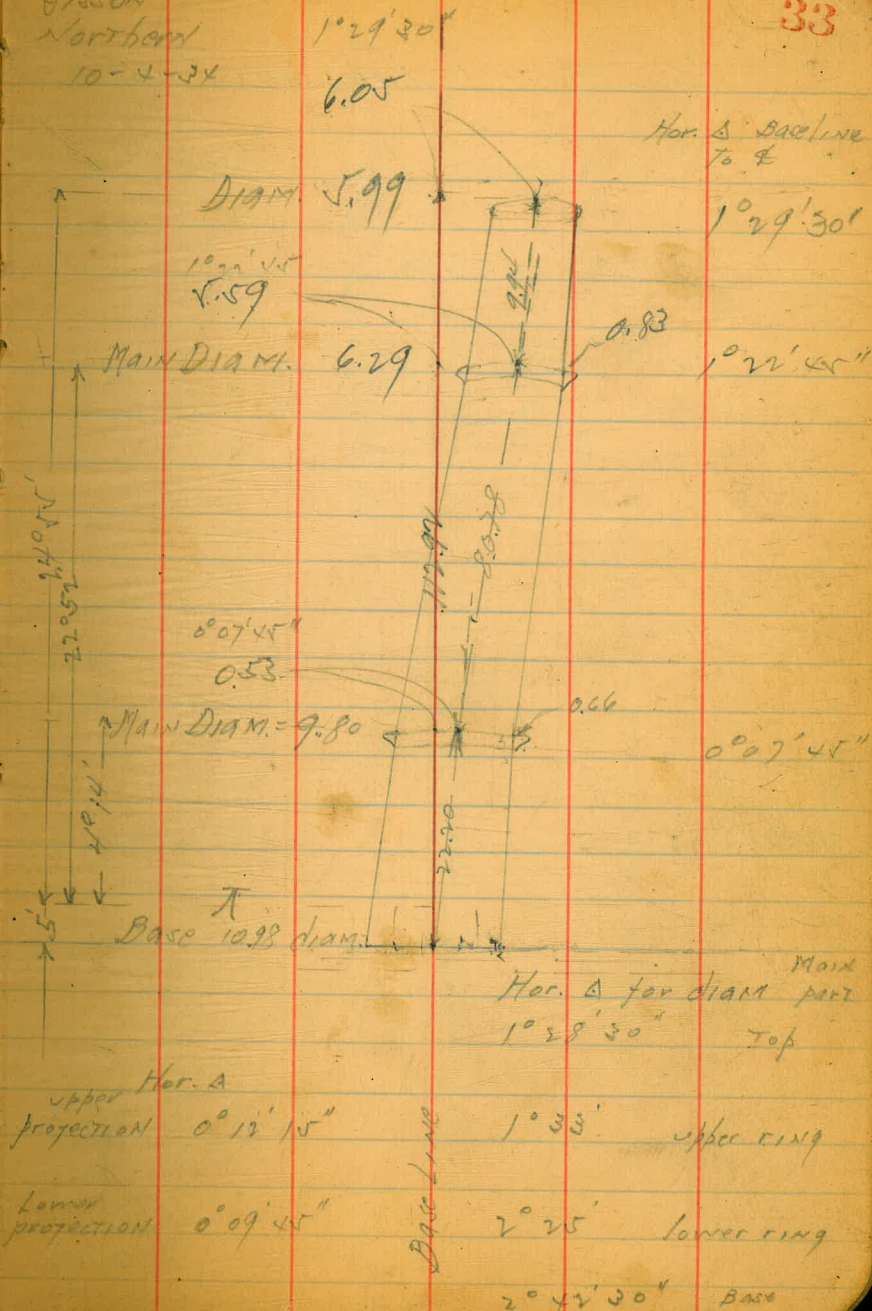 33
Northern 1°29'30"
10-4-34
6.05
Hor. ∆ Baseline
To ℄
Diam. 5.99
1°29'30'
1°22'45
5.59
9.94
0.83
Main Diam. 6.29
1°22'45"
24°55'
22°52'
112.92
80.78
0°07'45"
0.53
0.66
Main Diam. = 9.80
0°07'45"
4°14'
22.20
5'
Base 10.98 diam.
Hor. ∆ for diam Main part
1°28'30" Top
Hor. ∆
upper
projection 0°12'15" 1°33' upper ring
Base Line
Lower
projection 0°09'45" 2°25' lower ring
2°42'30" Base